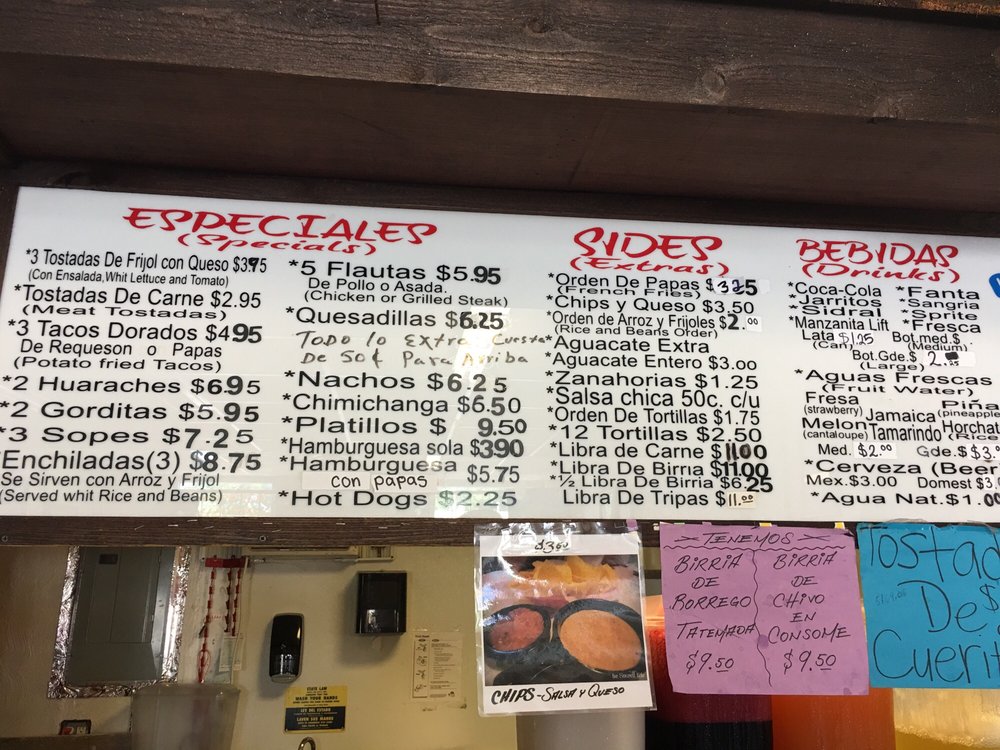 ESPECIALES
(Specials)
*3 Tostadas De Frijol con Queso $3.95
(Con Ensalada, Whit Lettuce and Tomato)
*Tostadas De Carne $2.95
(Meat Tostadas)
*3 Tacos Dorados $4.95
De Requeson o Papas
(Potato fried Tacos)
*2 Huaraches $6.95
*2 Gorditas $5.95
*3 Sopes $7.25
*Enchiladas(3) $8.75
Se Sirven con Arroz y Frijol
(Served whit Rice and Beans)
*5 Flautas $5.95
De Pollo o Asada.
(Chicken or Grilled Steak)
*Quesadillas $6.25
Todo lo Extra Cuesta
De 50¢ Para Arriba
*Nachos $6.25
*Chimichanga $6.50
*Platillos $ 9.50
*Hamburguesa sola $3.90
*Hamburguesa
con papas $5.75
*Hot Dogs $2.25
SIDES
(Extras)
*Orden De Papas $3.25
(French Fries)
*Chips y Queso $3.50
*Orden de Arroz y Frijoles $2.00
(Rice and Beans Order)
*Aguacate Extra
*Aguacate Entero $3.00
*Zanahorias $1.25
*Salsa chica 50c. c/u
*Orden De Tortillas $1.75
*12 Tortillas $2.50
*Libra de Carne $11.00
*Libra De Birria $11.00
*½ Libra De Birria $6.25
Libra De Tripas $11.00
BEBIDAS
(Drinks)
*Coca-Cola *Fanta
*Jarritos *Sangria
*Sidral *Sprite
*Manzanita Lift *Fresca
Lata $1.25 Bot.med.$
(Can) (Medium)
Bot.Gde.$ 2.
(Large)
*Aguas Frescas
(Fruit Water)
Fresa Piña
(strawberry) Jamaica (pineapple
Melon Tamarindo Horchat
(cantaloupe) (Rice
Med. $2.00 Gde.$ $3.
*Cerveza (Beer
Mex.$3.00 Domest $3.
*Agua Nat.$1.00
CHIPS-SALSA Y QUESO
TENEMOS
BIRRIA
DE
BORREGO
TATEMADA
$9.50
BIRRIA
DE
CHIVO
EN
CONSOME
$9.50
Tostad
De $
Cueri
STATE LAW
WASH YOUR HANDS
LEY DEL ESTADO
LAVES SUS MANOS